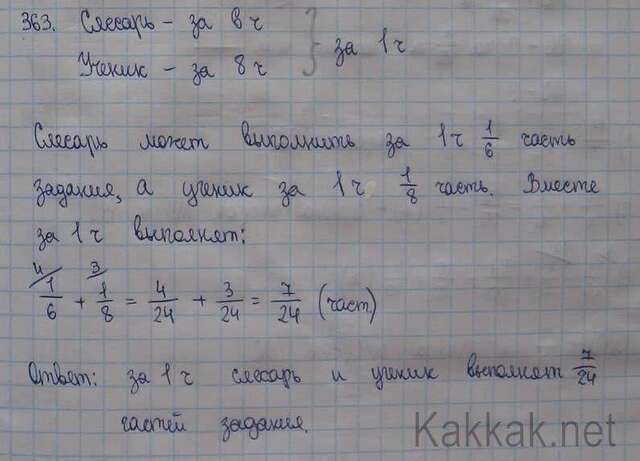 363. Слесарь - за 6 ч
Ученик - за 8 ч } за 1 ч
Слесарь может выполнить за 1 ч 1/6 часть
задания, а ученик за 1 ч 1/8 часть. Вместе
за 1 ч выполнят:
4/ 3/
1/6 + 1/8 = 4/24 + 3/24 = 7/24 (част)
Ответ: за 1 ч слесарь и ученик выполнят 7/24
частей задания.
Kakkak.net